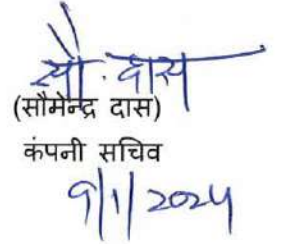 सौ. दास
(सौमेन्द्र दास)
कंपनी सचिव
9/1/2024